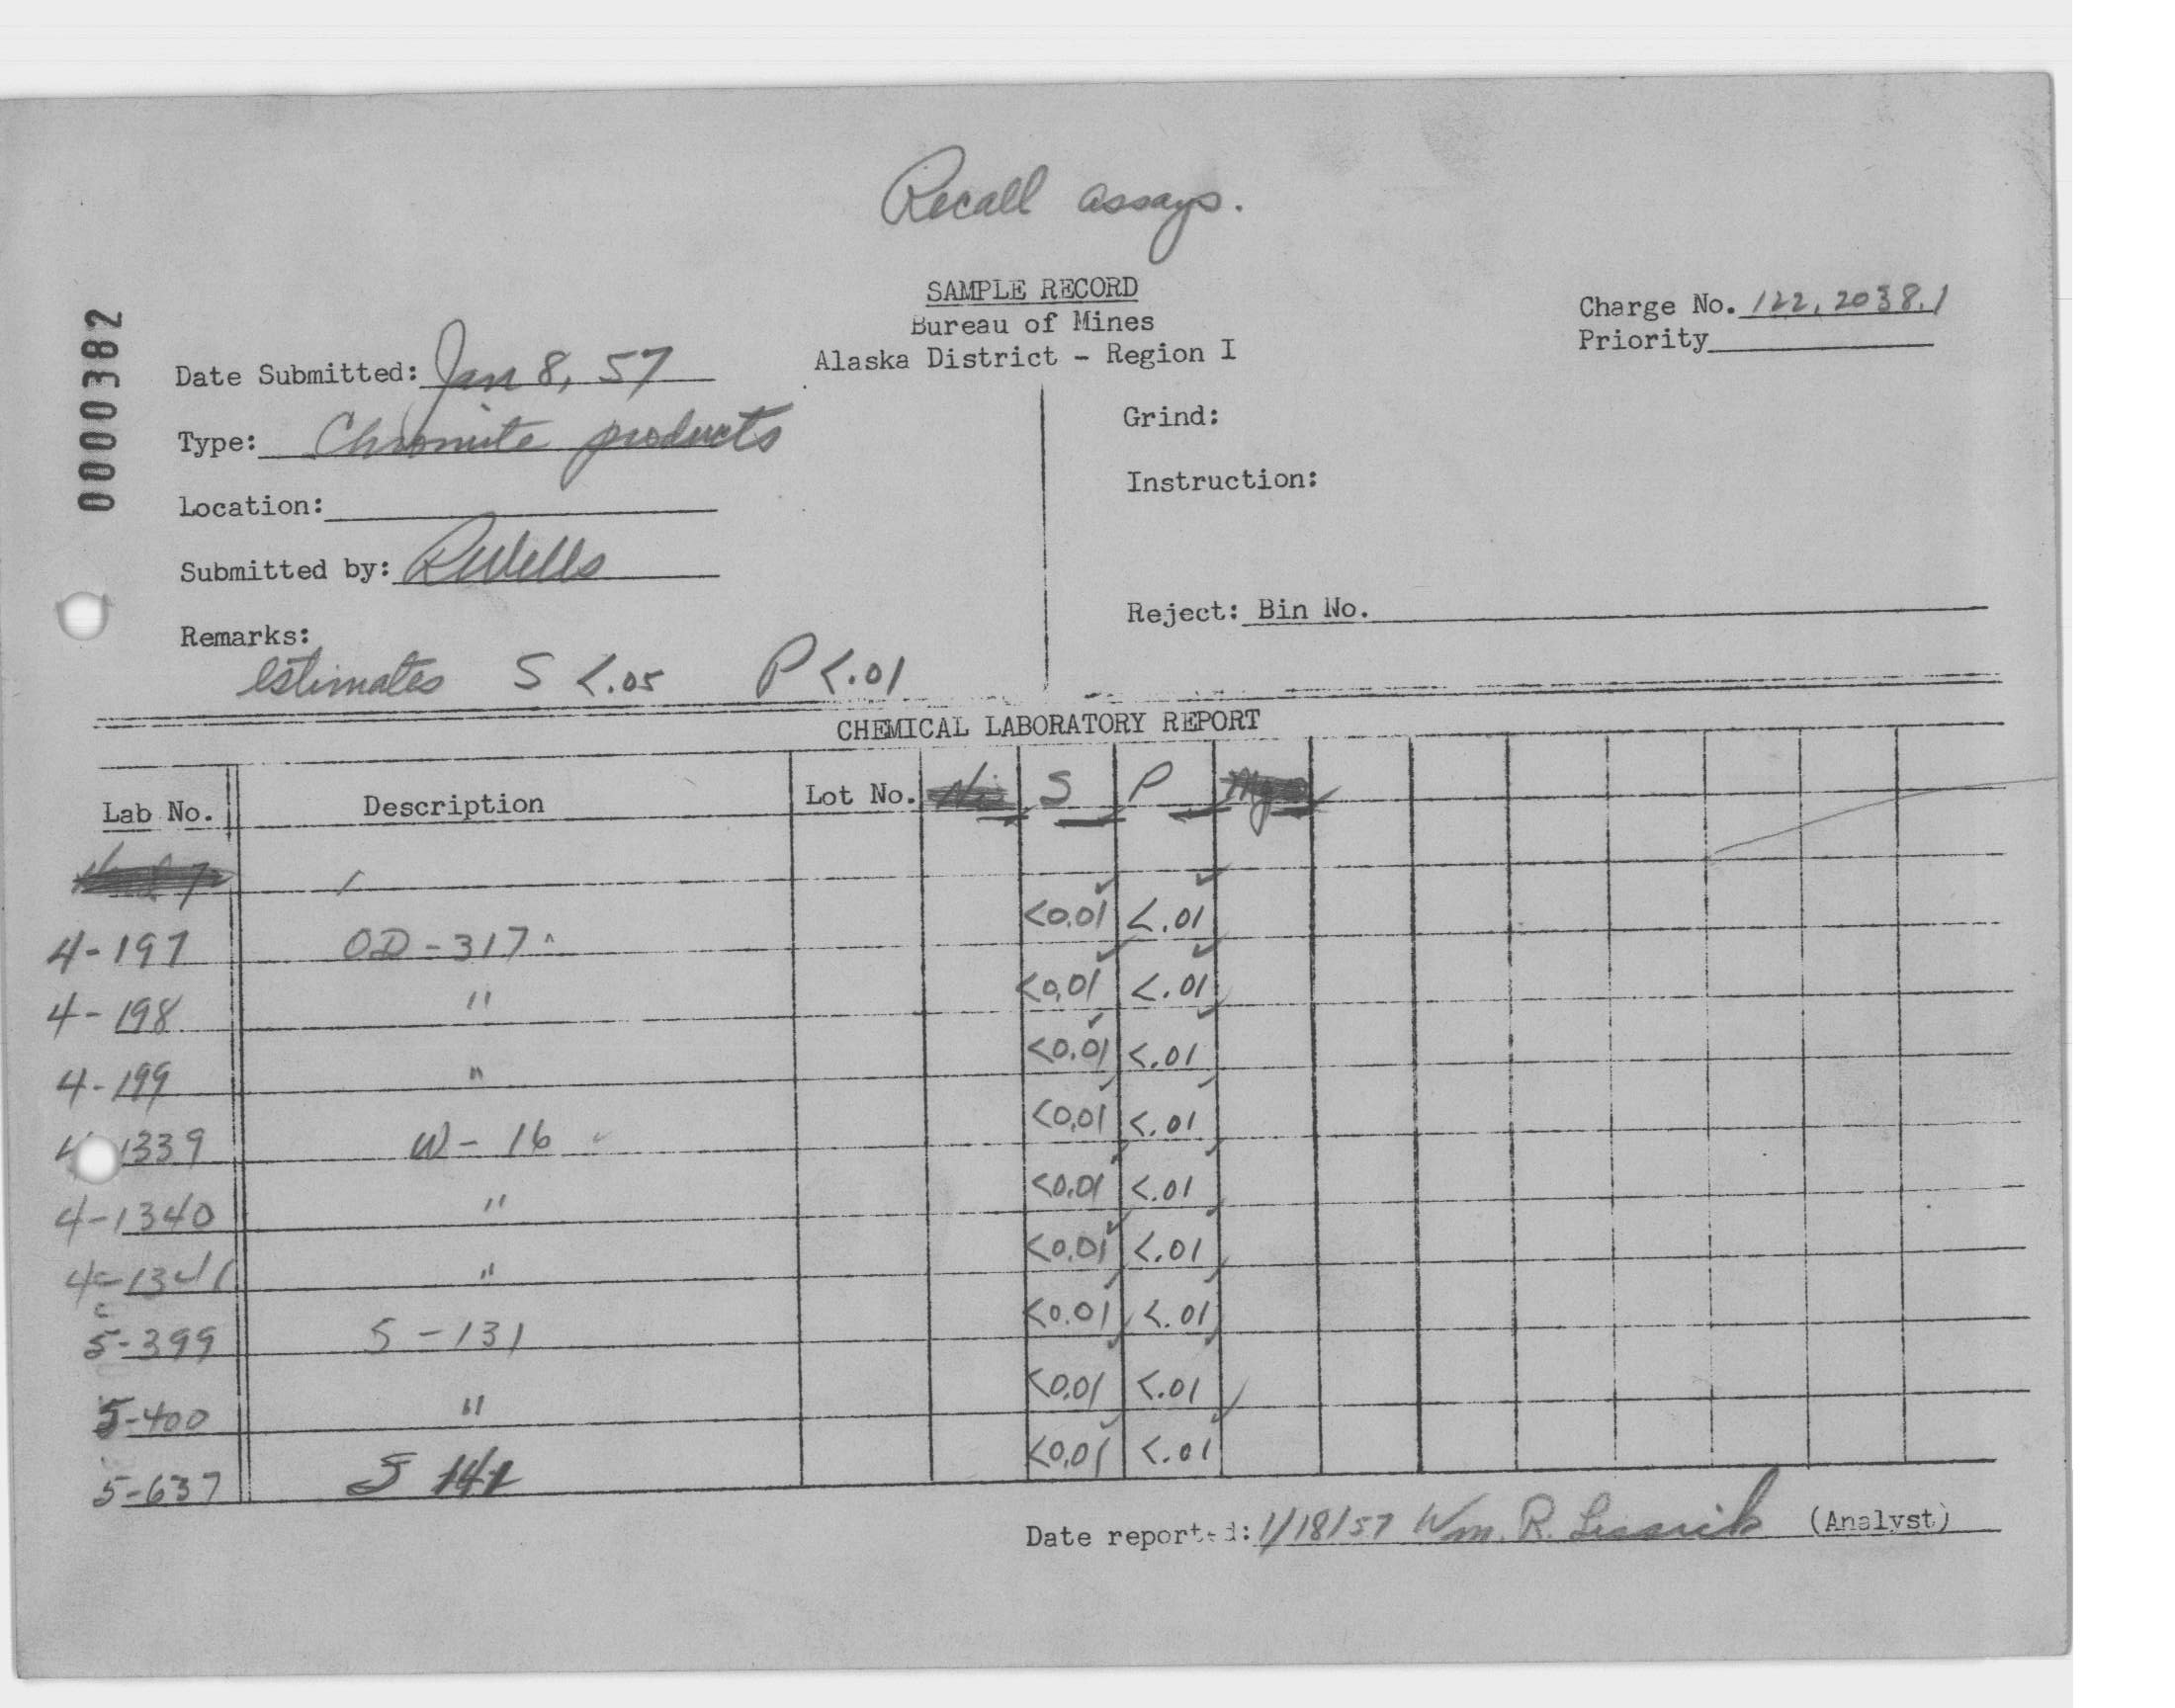 Recall assays.
SAMPLE RECORD
Bureau of Mines
Alaska District - Region I
Charge No. 122, 2038.1
Priority
0000382
Date Submitted: Jan 8, 57
Type: Chromite products
Location:
Submitted by: RWells
Remarks:
estimates S <.05 P <.01
Grind:
Instruction:
Reject: Bin No.
CHEMICAL LABORATORY REPORT
Lab No. Description Lot No. Ni S P Mg
4-197 OD-317 <0.01 <.01
4-198 " <0.01 <.01
4-199 " <0.01 <.01
1339 W-16 <0.01 <.01
4-1340 " <0.01 <.01
4-1341 " <0.01 <.01
5-399 S-131 <0.01 <.01
5-400 " <0.01 <.01
5-637 S <0.01 <.01
Date reported: 1/18/57 Wm. R. (Analyst)